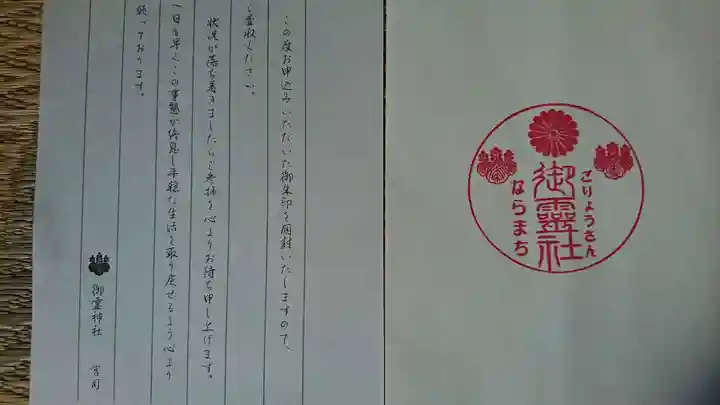 この度お申込みいただいた御朱印を同封いたしますので、
ご査収ください。
状況が落ち着きましたらご参拝を心よりお待ち申し上げます。
一日も早くこの事態が終息し平穏な生活を取り戻せるよう心より
祈っております。
御霊神社 宮司
ごりょうさん
御靈社
ならまち